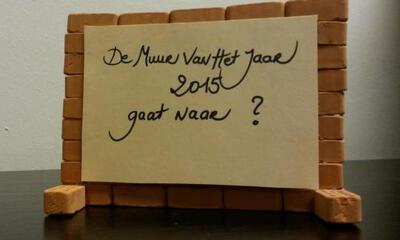 De Muur Van Het Jaar
2015
gaat naar ?